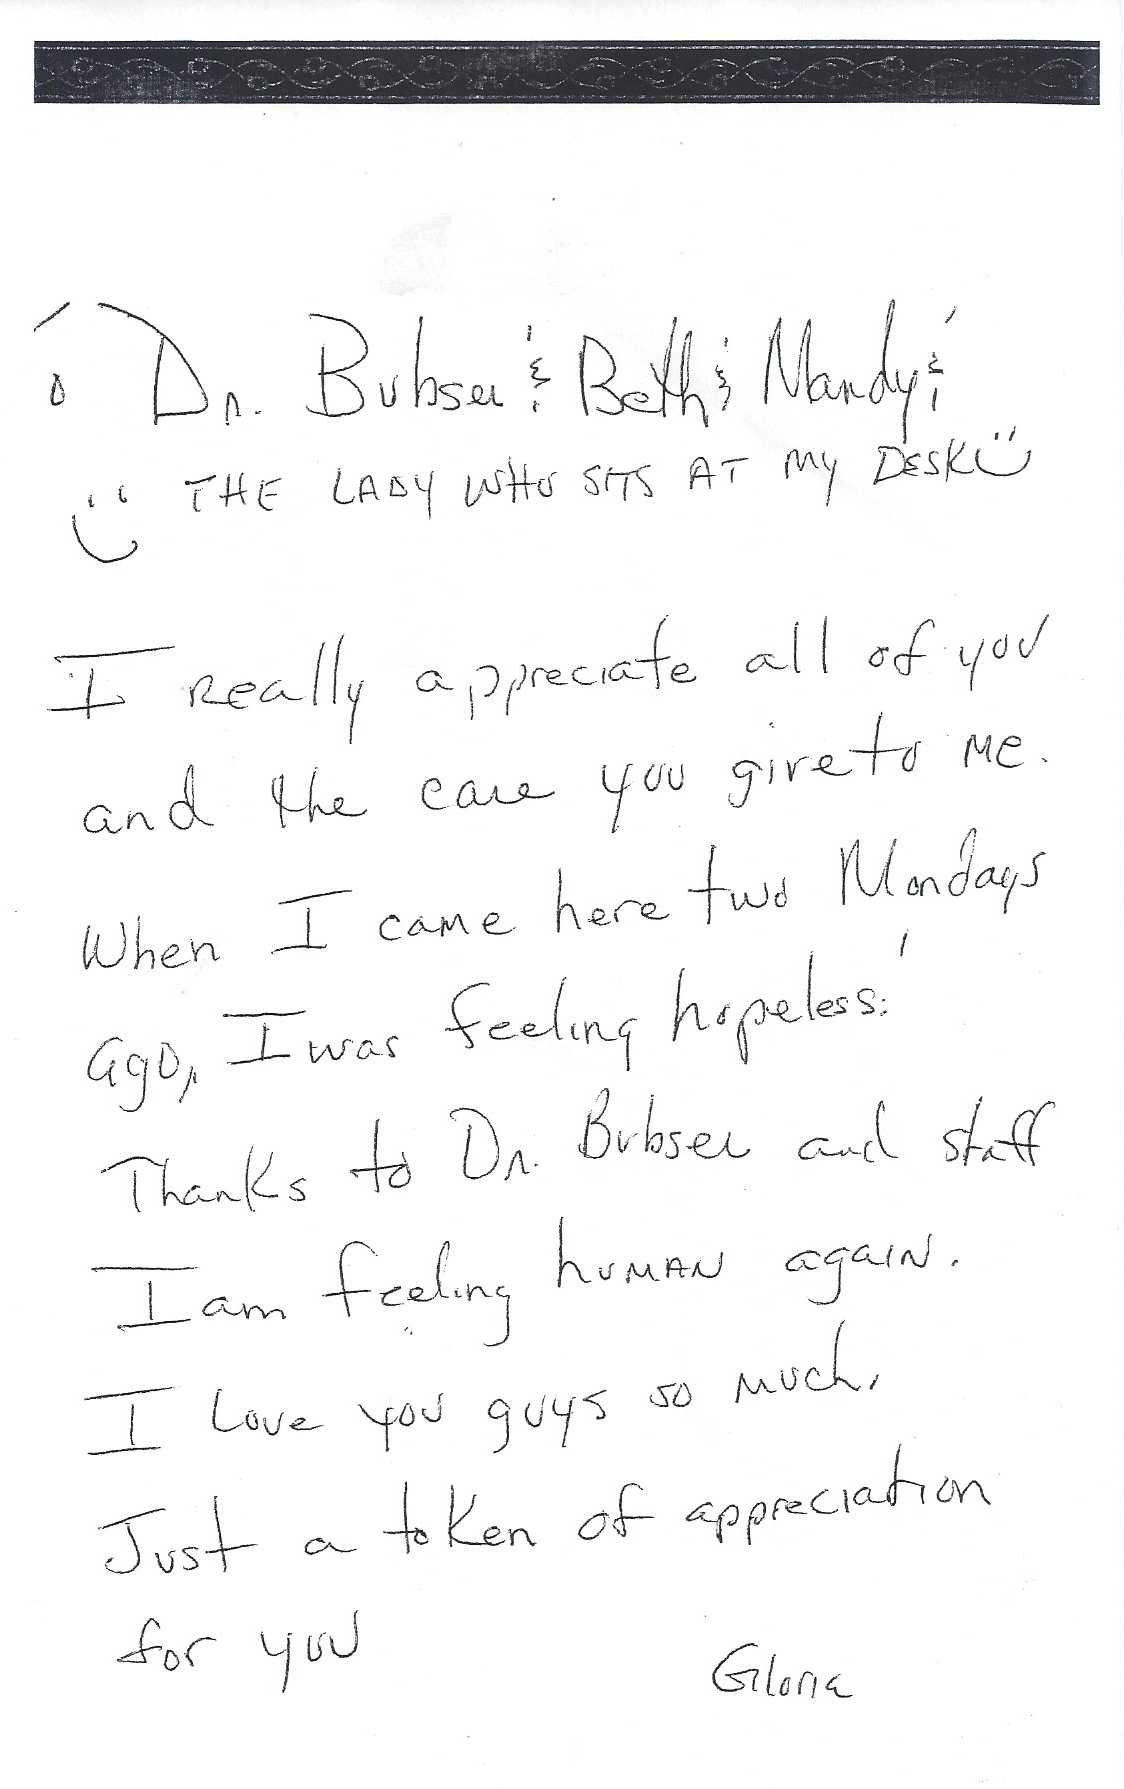 Dr. Bubser & Beth & Mandy &
THE LADY WHO SITS AT MY DESK
I really appreciate all of you
and the care you give to me.
When I came here two Mondays
ago, I was feeling hopeless.
Thanks to Dr. Bubser and staff
I am feeling human again.
I Love you guys so much.
Just a token of appreciation
for you
Gloria